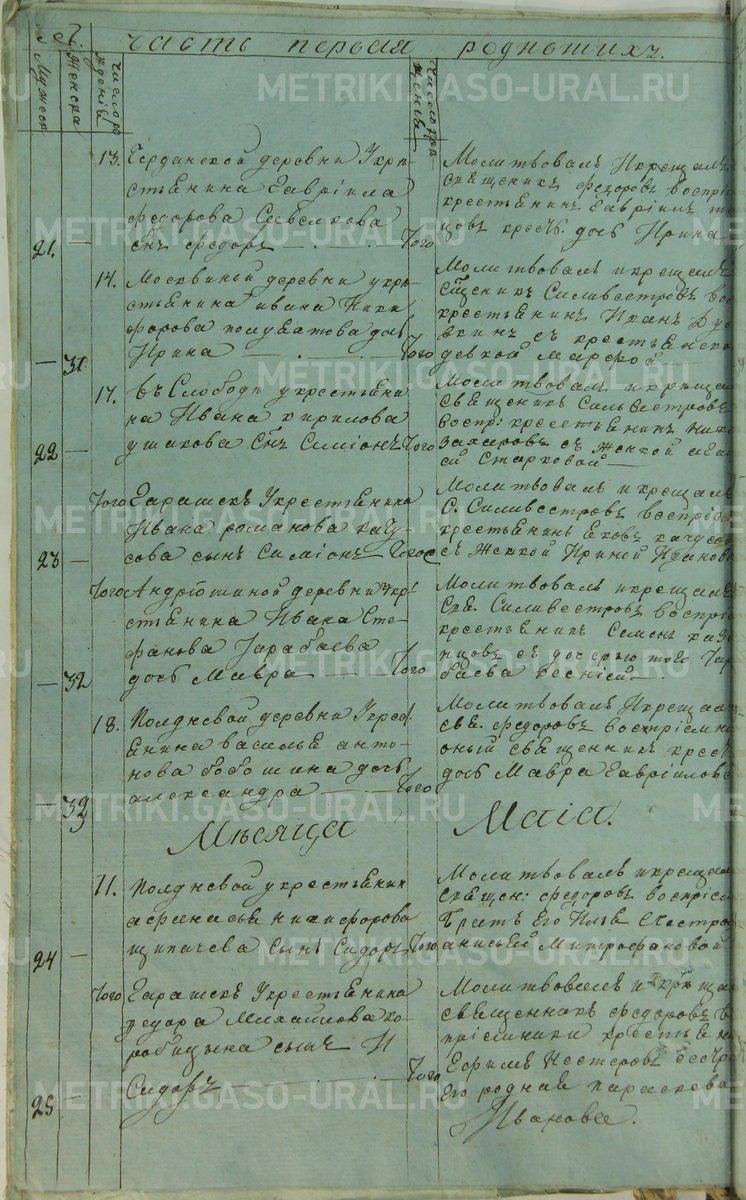 Часть первая родившихъ.
Мужеск
Женска
Число ро
ждения
Число кре
щения
13. деревни Укре
стьянина Гавриила
Федорова Савелкова
21. — сынъ Федоръ — Того
Молитвовалъ Икрещалъ
священникъ Федоровъ воспрі
крестьянинъ Гавріилъ
крест: дочь Ирина
14. Москвиной деревни укре
стьянина Ивана Ники
форова Полуектова дочь
— 31 Ирина — Того
Молитвовалъ икрещалъ
Сщеникъ Силивестровъ во
крестьянинъ Иванъ
съ крестьянско
девкой Марфой
17. въ Слободѣ укрестьяни
на Ивана Кирилова
22 — ушакова Сынъ Симіонъ Того
Молитвовалъ икреща
священикъ Сильвестровъ
воспр: крестьянинъ Ники
Захаровъ съ женкой
Старковой —
Того Гарашекъ Укрестьянина
Ивана романова качу
23 — сова сынъ Симіонъ — Того
Молитвовалъ икрещалъ
С. Силивестровъ воспріе
крестьянинъ Яковъ качусов
съ Женкой Ириной Иванов
Того Андрюшиной деревни укр
стьянина Ивана Сте
фанова Тарабаева
— 32 дочь Мавра — Того
Молитвовалъ икрещалъ
Свя. Силивестровъ воспріе
крестьянинъ Семенъ каза
нцовъ съ дочерью того Тар
баева Ксеніей —
18. Полдневой деревни Укрес
янина василья анто
нова бобошина дочь
— 33 александра — Того
Молитвовалъ Икрещал
свя. Федоровъ воспріемни
оный священникъ крест
дочь Мавра Гавріилова
Мѣсяца Маіа.
11. Полдневой укрестьянин
афанасья никифорова
24 — щипачева сынъ Сидоръ Того
Молитвовалъ икрещал
Священ: Федоровъ воспріем
братъ Его Илья Сестро
анисьей Митрофановой
Того Гарашекъ Укрестьянина
Федора Михаилова ко
робицына сынъ И
25 — Сидоръ — Того
Молитвовалъ и креща
священникъ Федоровъ в
пріемники крестьяни
Ефимъ Нестеровъ сестр
Его родная параскева
Ивановна.
METRIKI.GASO-URAL.RU